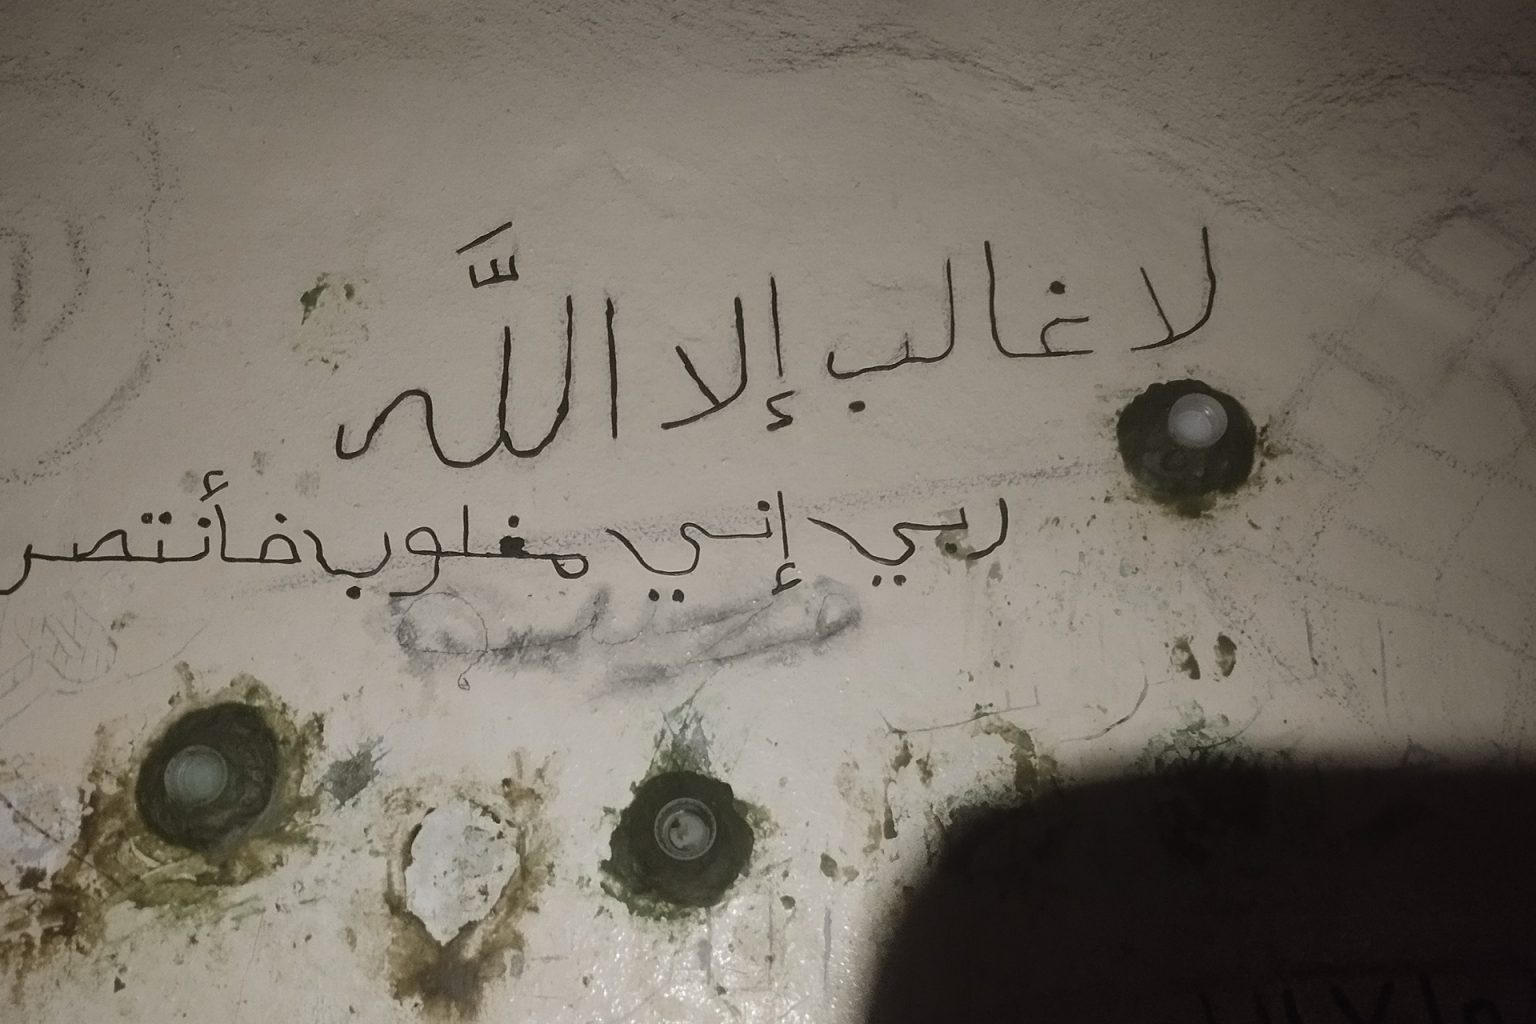 لا غالب إلا اللَّه
ربي إني مغلوب فأنتصر